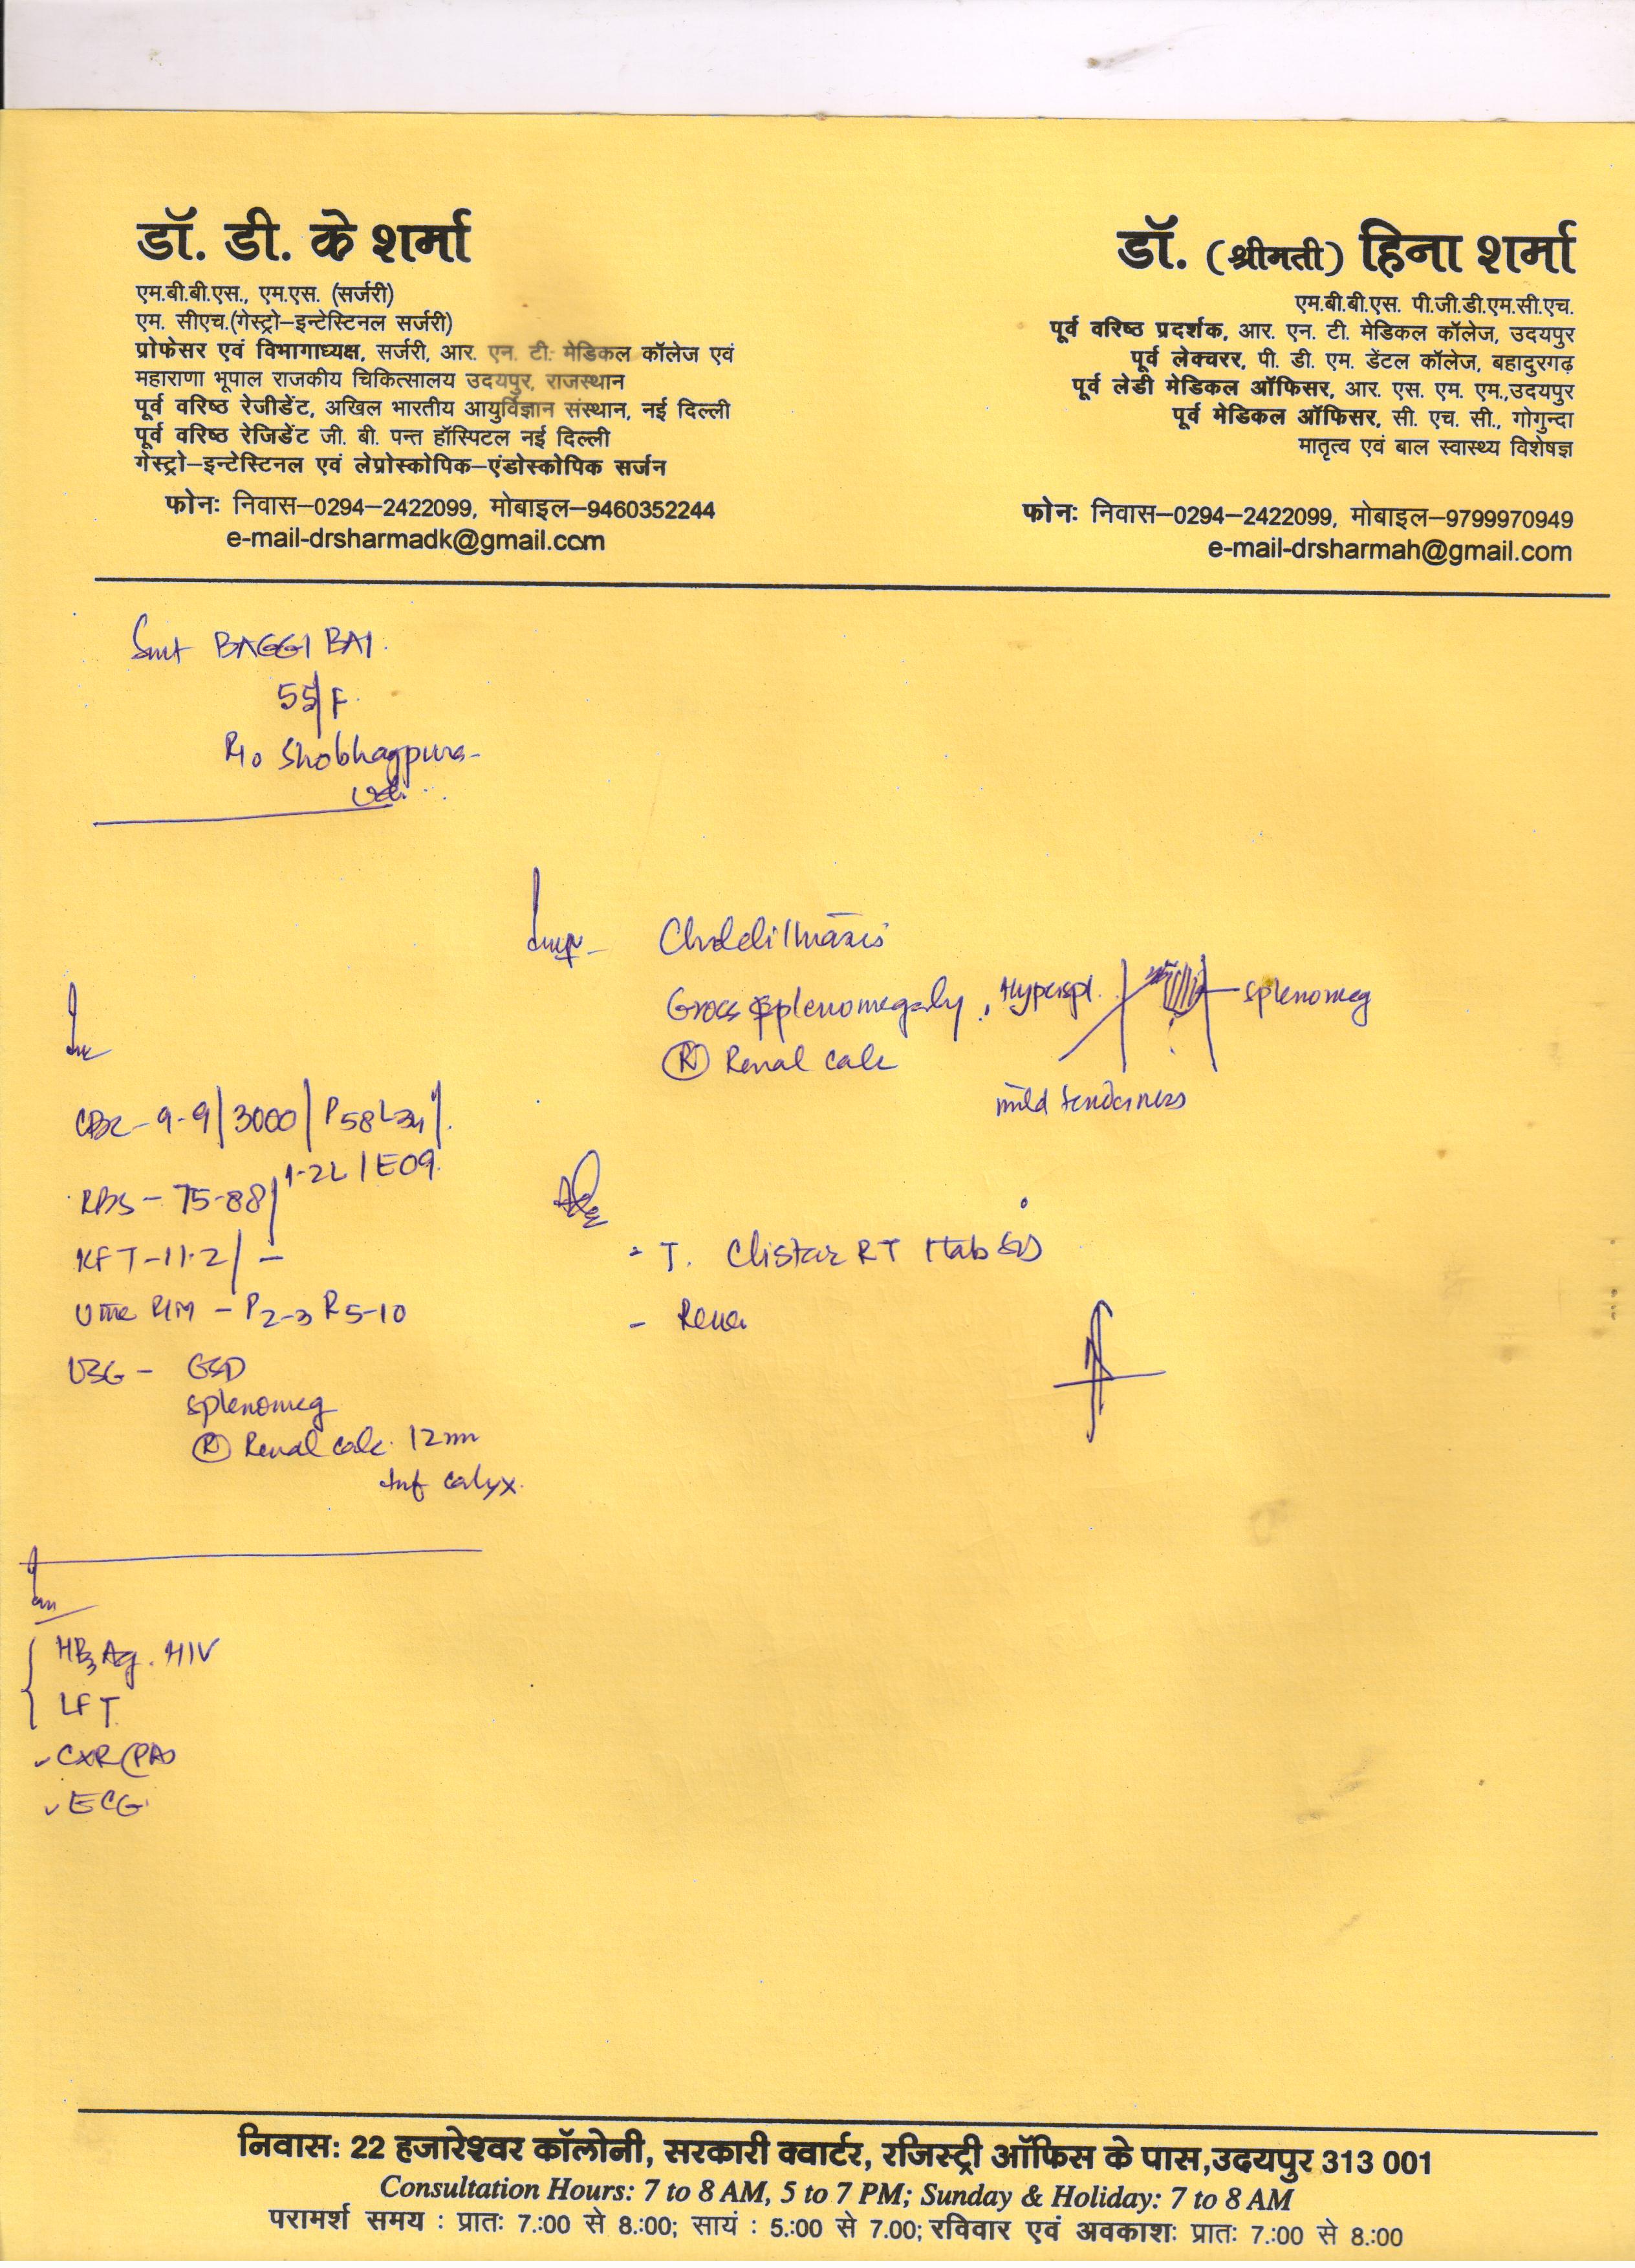 डॉ. डी. के शर्मा
एम.बी.बी.एस., एम.एस. (सर्जरी)
एम. सीएच.(गेस्ट्रो–इन्टेस्टिनल सर्जरी)
प्रोफेसर एवं विभागाध्यक्ष, सर्जरी, आर. एन. टी. मेडिकल कॉलेज एवं
महाराणा भूपाल राजकीय चिकित्सालय उदयपुर, राजस्थान
पूर्व वरिष्ठ रेजीडेंट, अखिल भारतीय आयुर्विज्ञान संस्थान, नई दिल्ली
पूर्व वरिष्ठ रेजिडेंट जी. बी. पन्त हॉस्पिटल नई दिल्ली
गेस्ट्रो–इन्टेस्टिनल एवं लेप्रोस्कोपिक–एंडोस्कोपिक सर्जन
फोनः निवास–0294–2422099, मोबाइल–9460352244
e-mail-drsharmadk@gmail.com
डॉ. (श्रीमती) हिना शर्मा
एम.बी.बी.एस. पी.जी.डी.एम.सी.एच.
पूर्व वरिष्ठ प्रदर्शक, आर. एन. टी. मेडिकल कॉलेज, उदयपुर
पूर्व लेक्चरर, पी. डी. एम. डेंटल कॉलेज, बहादुरगढ़
पूर्व लेडी मेडिकल ऑफिसर, आर. एस. एम. एम.,उदयपुर
पूर्व मेडिकल ऑफिसर, सी. एच. सी., गोगुन्दा
मातृत्व एवं बाल स्वास्थ्य विशेषज्ञ
फोनः निवास–0294–2422099, मोबाइल–9799970949
e-mail-drsharmah@gmail.com
Smt BAGGI BAI.
55/F.
R/o Shobhagpura-
Ud.
Imp - Cholelithiasis
Gross splenomegaly, Hyperspl.
splenomeg
(R) Renal calc
mild tenderness
Inv
CBC - 9-9/3000/P58 L34/
1.2L/E09.
RBS - 75-88/
KFT - 11.2/-
Urine R/M - P2-3 R5-10
USG - GSD
splenomeg
(R) Renal calc. 12mm
Inf calyx.
Adv
- T. Clistar RT 1tab
Inv
HBsAg. HIV
LFT.
CXR (PA)
ECG.
निवासः 22 हजारेश्वर कॉलोनी, सरकारी क्वार्टर, रजिस्ट्री ऑफिस के पास,उदयपुर 313 001
Consultation Hours: 7 to 8 AM, 5 to 7 PM; Sunday & Holiday: 7 to 8 AM
परामर्श समय : प्रातः 7.:00 से 8.:00; सायं : 5.:00 से 7.00; रविवार एवं अवकाशः प्रातः 7.:00 से 8.:00